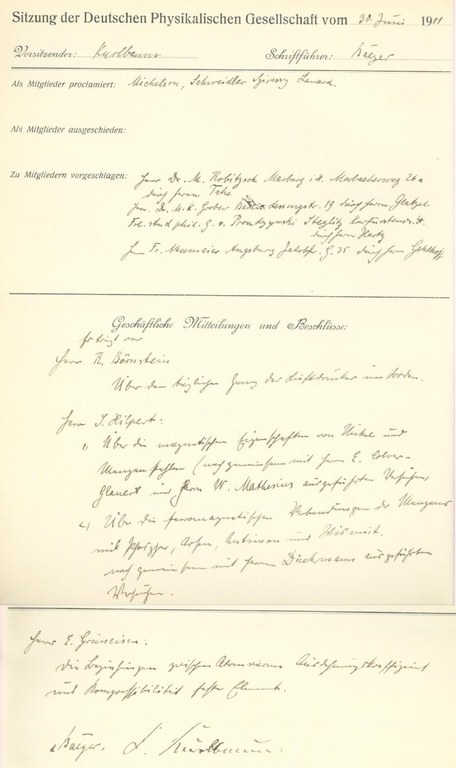 Sitzung der Deutschen Physikalischen Gesellschaft vom 30. Juni 1911
Vorsitzender: Kurlbaum Schriftführer: Baeyer
Als Mitglieder proclamiert: Michelson, Schweidler Lenard.
Als Mitglieder ausgeschieden:
Zu Mitgliedern vorgeschlagen: Herr Dr. M. Robitzsch Marburg i. H. Marbacherweg 26a
durch Herrn
Herr Dr. M. K. Grober 19 durch Herrn Glatzel
Frl. stud. phil. G. v. Prondzynski Steglitz Kurfürstenstr. 4.
durch Herrn Hertz
Herr Fr. Neumeier Augsburg Jakobstr. G. 35 durch Herrn Gehlhoff
Geschäftliche Mitteilungen und Beschlüsse:
Es trägt vor
Herr R. Börnstein
Über den täglichen Gang des Luftdruckes im Norden.
Herr S. Hilpert:
1) Über die magnetischen Eigenschaften von Nickel und
Manganstählen (nach gemeinsam mit Herrn E. Colver-
Glauert und Herrn W. Mathesius ausgeführten Versuchen)
2) Über die ferromagnetischen Verbindungen des Mangans
mit Phosphor, Arsen, Antimon und Wismut.
nach gemeinsam mit Herrn Dieckmann ausgeführten
Versuchen.
Herr E. Grüneisen:
Die Beziehungen zwischen Atomwärme Ausdehnungskoeffizient
und Kompressibilität fester Elemente.
Baeyer. F. Kurlbaum.